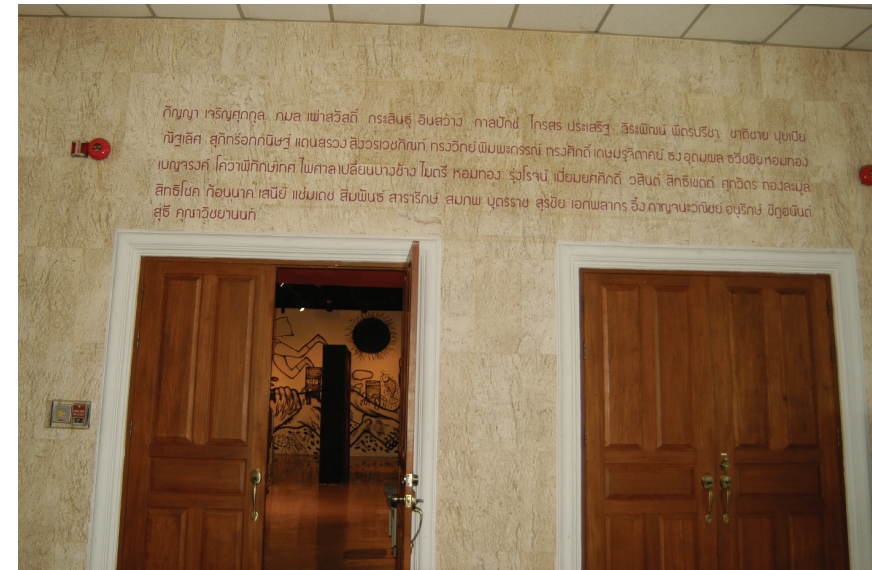 กัญญา เจริญศุภกุล กมล เผ่าสวัสดิ์ กระสินธุ์ อินสว่าง กาลปักษ์ ไกรสร ประเสริฐ วิระพัฒน์ พิตรปรีชา ชาติชาย ปุยเปีย
ณัฐเลิศ แดนสรวง สังวรเวชภัณฑ์ ทรงวิทย์ พิมพะกรรณ์ ทรงศักดิ์ เกษมรุจิภาคย์ ธง อุดมผล ธวัชชัย หอมทอง
เบญจรงค์ โควาพิทักษ์เทศ ไพศาล เปลี่ยนบางช้าง ไมตรี หอมทอง รุ่งโรจน์ เปี่ยมยศศักดิ์ วสันต์ สิทธิเขตต์ ศุภวัตร ทองละมุล
สิทธิโชค ก้อนนาค เสนีย์ แช่มเดช สัมพันธ์ สารารักษ์ สมภพ บุตรราช สุรชัย เอกพลากร อึ๋ง กาญจนะวณิชย์ อนุรักษ์ ชัญอนันต์
สุธี คุณาวิชยานนท์